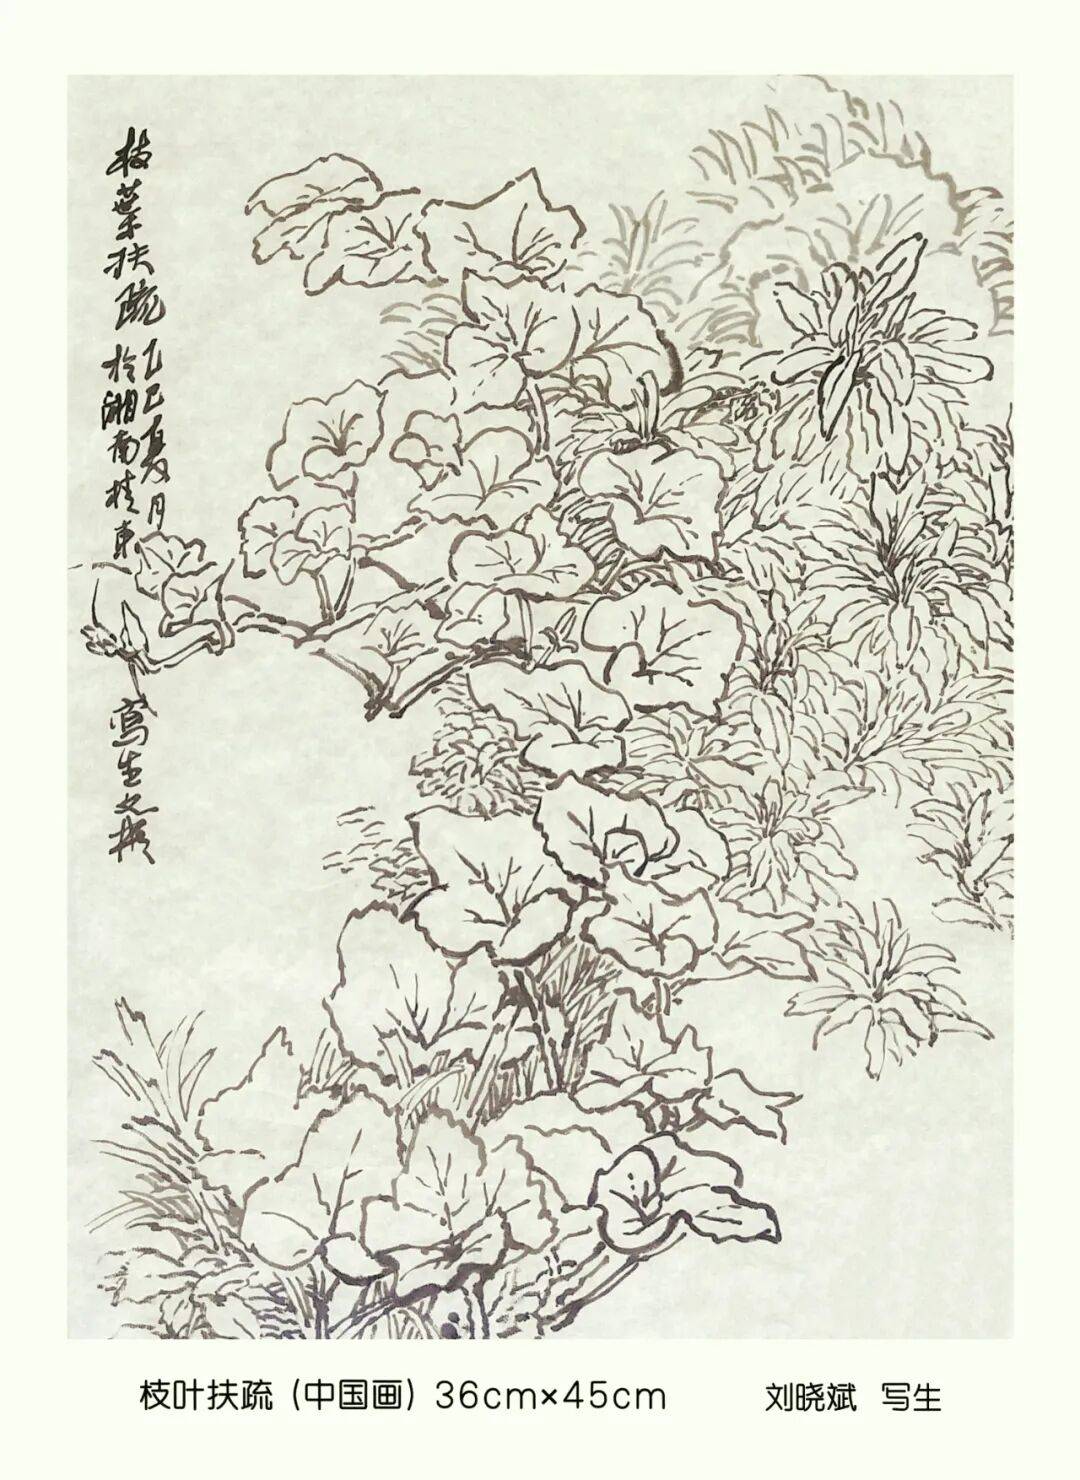 枝葉扶疏
乙巳夏月
於湘南桂東
寫生文彬
枝叶扶疏（中国画）36cm×45cm
刘晓斌 写生